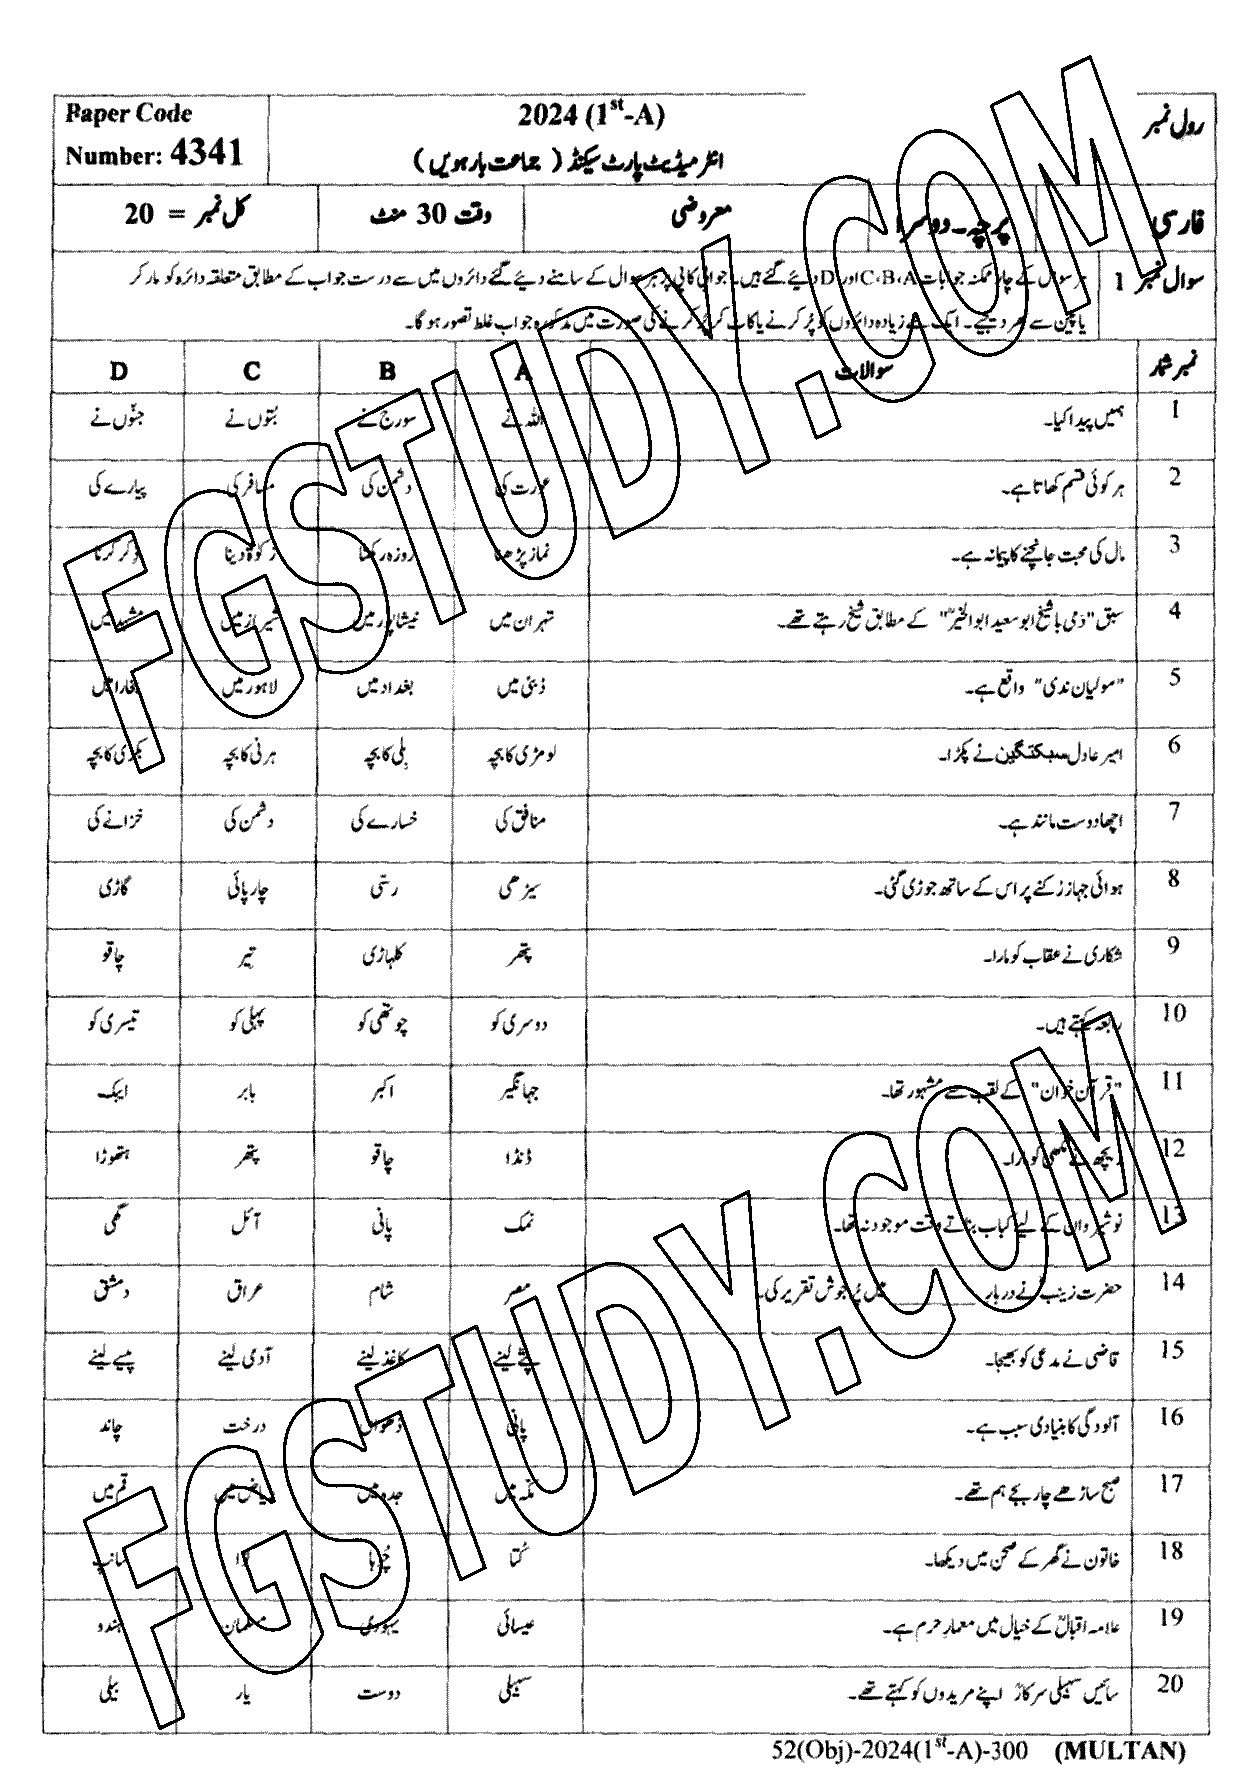 Paper Code
Number: 4341
2024 (1st-A)
انٹرمیڈیٹ پارٹ سیکنڈ ( جماعت بارہویں )
رول نمبر
فارسی
پرچہ۔ دوسرا
معروضی
وقت 30 منٹ
کل نمبر = 20
سوال نمبر 1
ہر سوال کے چار ممکنہ جوابات A،B،C اور D دیئے گئے ہیں۔ جوابی کاپی پر ہر سوال کے سامنے دیئے گئے دائروں میں سے درست جواب کے مطابق متعلقہ دائرہ کو مار کر
یا پین سے بھر دیجیے۔ ایک سے زیادہ دائروں کو پُر کرنے یا کاٹ کر پُر کرنے کی صورت میں مذکورہ جواب غلط تصور ہو گا۔
نمبر شمار سوالات A B C D
1 ہمیں پیدا کیا۔ اللہ نے سورج نے بُتوں نے جنّوں نے
2 ہر کوئی قسم کھاتا ہے۔ عورت کی دشمن کی مسافر کی پیارے کی
3 مال کی محبت جانچنے کا پیمانہ ہے۔ نماز پڑھنا روزہ رکھنا زکوٰۃ دینا ذکر کرنا
4 سبق "دَمی با شیخ ابو سعید ابو الخیرؒ" کے مطابق شیخ رہتے تھے۔ تہران میں نیشاپور میں شیراز میں مشہد میں
5 "مولیان ندی" واقع ہے۔ دُبئی میں بغداد میں لاہور میں بخارا میں
6 امیر عادل سبکتگین نے پکڑا۔ لومڑی کا بچہ بلی کا بچہ ہرنی کا بچہ بکری کا بچہ
7 اچھا دوست مانند ہے۔ منافق کی خسارے کی دشمن کی خزانے کی
8 ہوائی جہاز رُکنے پر اس کے ساتھ جوڑی گئی۔ سیڑھی رسّی چارپائی گاڑی
9 شکاری نے عقاب کو مارا۔ پتھر کلہاڑی تیر چاقو
10 رابعہ کہتے ہیں۔ دوسری کو چوتھی کو پہلی کو تیسری کو
11 "قرآن خوان" کے لقب سے مشہور تھا۔ جہانگیر اکبر بابر ایبک
12 ریچھ نے مکھی کو مارا۔ ڈنڈا چاقو پتھر ہتھوڑا
13 نوشیروان کے لیے کباب بناتے وقت موجود نہ تھا۔ نمک پانی آئل گھی
14 حضرت زینبؑ نے دربار ________ میں پُر جوش تقریر کی۔ مصر شام عراق دمشق
15 قاضی نے مدعی کو بھیجا۔ پتے لینے کاغذ لینے آدمی لینے پیسے لینے
16 آلودگی کا بنیادی سبب ہے۔ پانی دُھواں درخت چاند
17 صبح ساڑھے چار بجے ہم تھے۔ مکہ میں جدہ میں ریاض میں قم میں
18 خاتون نے گھر کے صحن میں دیکھا۔ کُتا چُوہا سانپ
19 علامہ اقبالؒ کے خیال میں معمارِ حرم ہے۔ عیسائی یہودی مسلمان ہندو
20 سائیں سہیلی سرکارؒ اپنے مریدوں کو کہتے تھے۔ سہیلی دوست یار بیلی
52(Obj)-2024(1st-A)-300 (MULTAN)
FGSTUDY.COM
FGSTUDY.COM